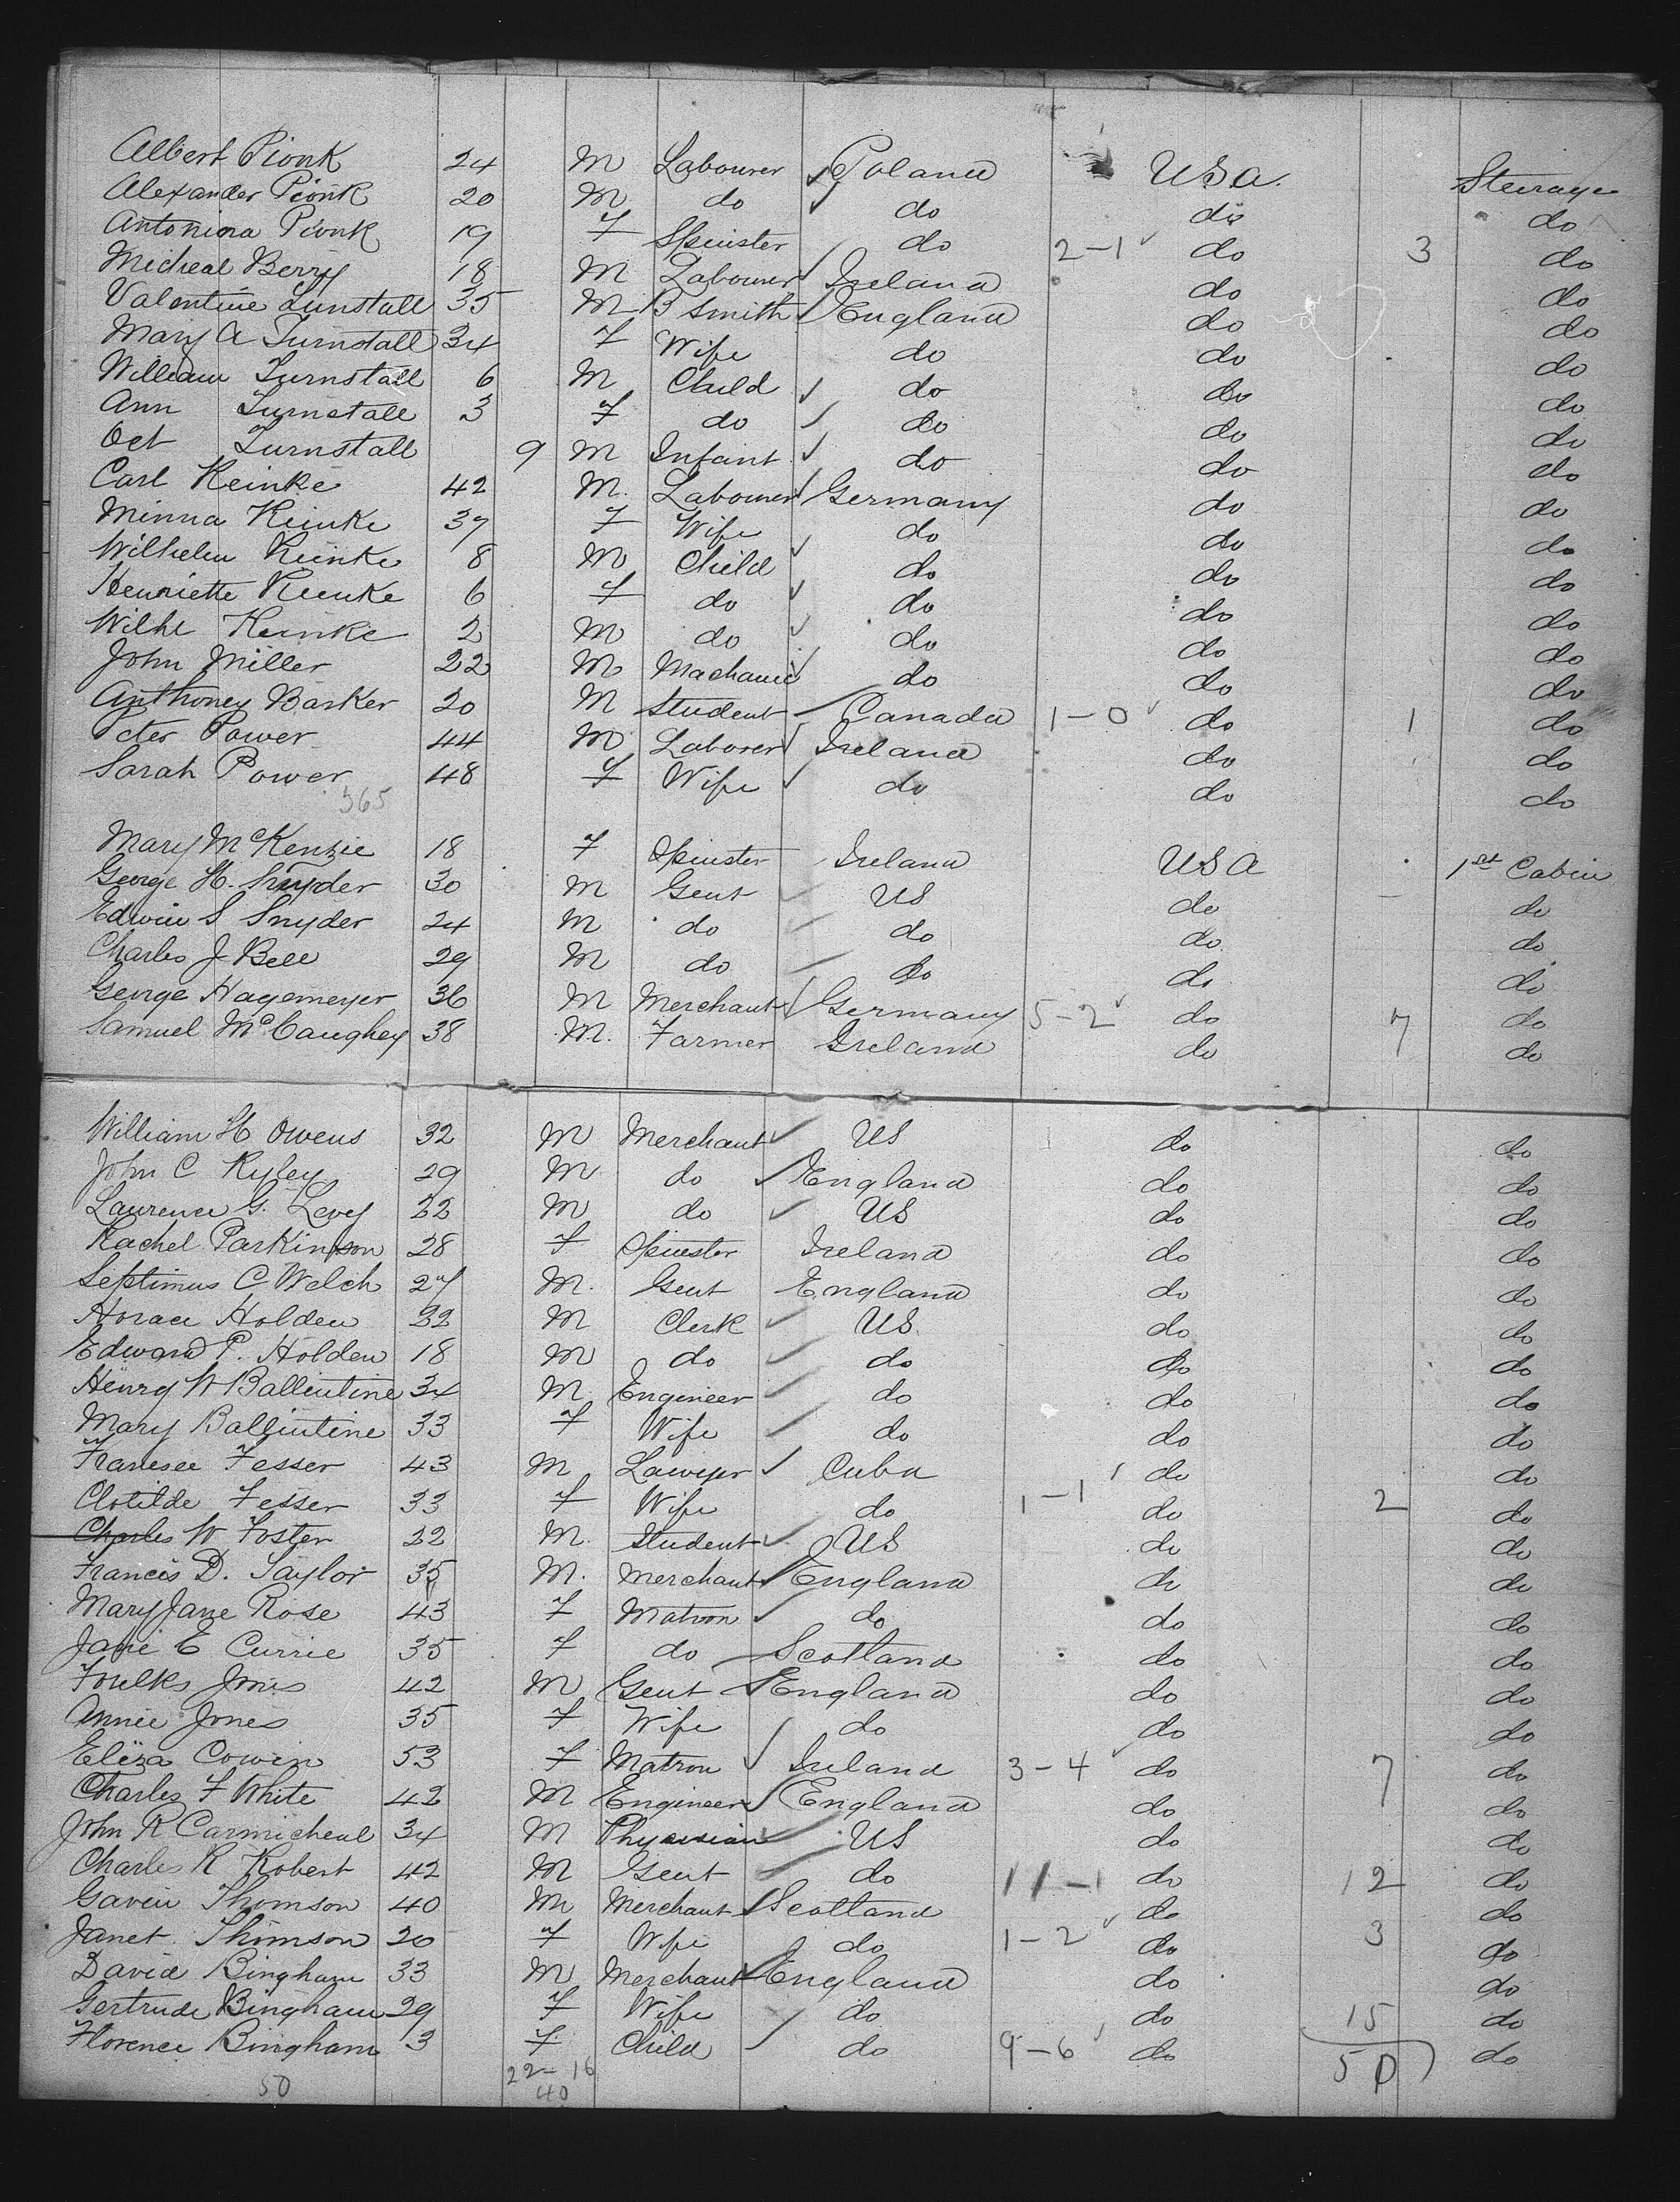 Albert Pionk 24 M Labourer Poland USA. Steerage
Alexander Pionk 20 M do do do do
Antonina Pionk 19 F Spinster do 2-1 do 3 do
Micheal Berry 18 M Labourer Ireland do do
Valentine Tunstall 35 M B Smith England do do
Mary A Turnstall 34 F Wife do do do
William Turnstall 6 M Child do do do
Ann Turnstall 3 F do do do do
Oct Turnstall 9 M Infant do do do
Carl Reinke 42 M. Labourer Germany do do
Minna Reinke 37 F Wife do do do
Wilhelm Reinke 8 M Child do do do
Henriette Reinke 6 F do do do do
Wilhl Reinke 2 M do do do do
John Miller 22 M Machanic do do do
Anthoney Barker 20 M Student Canada 1-0 do 1 do
Peter Power 44 M Laborer Ireland do do
Sarah Power 48 F Wife do do do
365
Mary McKenzie 18 F Spinster Ireland USA 1st Cabin
George H. Snyder 30 M Gent US do do
Edwin S Snyder 24 M do do do do
Charles J Bell 29 M do do do do
George Hagemeyer 36 M Merchant Germany 5-2 do do
Samuel McCaughey 38 M. Farmer Ireland do 7 do
William H Owens 32 M Merchant US do do
John C Ryley 29 M do England do do
Laurence G. Levy 22 M do US do do
Rachel Parkinson 28 F Spinster Ireland do do
Septimus C Welch 27 M. Gent England do do
Horace Holden 32 M Clerk US do do
Edward P. Holden 18 M do do do do
Henry W Ballintine 34 M. Engineer do do do
Mary Ballintine 33 F Wife do do do
Fracisce Fesser 43 M Lawyer Cuba do do
Clotilde Fesser 33 F Wife do 1-1 do 2 do
Charles W Foster 22 M. Student US do do
Francis D. Taylor 35 M. Merchant England do do
Mary Jane Rose 43 F Matron do do do
Jane E Currie 35 F do Scotland do do
Foulks Jones 42 M Gent England do do
Annie Jones 35 F Wife do do do
Eliza Cowin 53 F Matron Ireland 3-4 do 7 do
Charles F White 42 M Engineer England do do
John R Carmicheal 34 M Physisian US do do
Charles R Robert 42 M Gent do 11-1 do 12 do
Gavin Thomson 40 M Merchant Scotland do do
Janet Thomson 20 F Wife do 1-2 do 3 do
David Bingham 33 M Merchant England do do
Gertrude Bingham 29 F Wife do do 15 do
Florence Bingham 3 F Child do 9-6 do 50 do
50 22-16
40